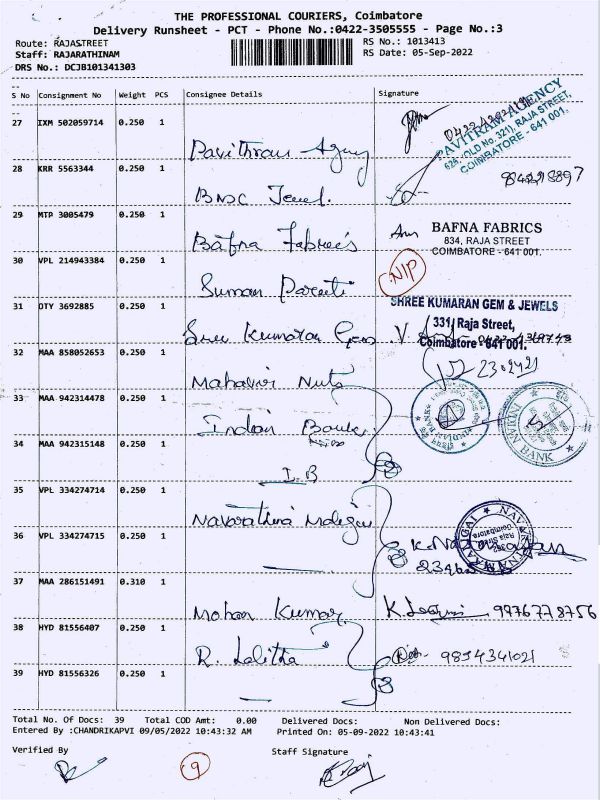 THE PROFESSIONAL COURIERS, Coimbatore
Delivery Runsheet - PCT - Phone No.:0422-3505555 - Page No.:3
Route: RAJASTREET
RS No.: 1013413
Staff: RAJARATHINAM
RS Date: 05-Sep-2022
DRS No.: DCJB101341303
S No Consignment No Weight PCS Consignee Details Signature
27 IXM 502059714 0.250 1
PAVITRAM AGENCY
624, (OLD No. 321), RAJA STREET,
COIMBATORE - 641 001.
Pavithram Agny
28 KRR 5563344 0.250 1
BNSC Jewel.
29 MTP 3005479 0.250 1
BAFNA FABRICS
834, RAJA STREET
COIMBATORE - 641 001.
Bafna Fabrics
30 VPL 214943384 0.250 1
NIP
Suman
31 OTY 3692885 0.250 1
SHREE KUMARAN GEM & JEWELS
331, Raja Street,
Coimbatore - 641 001.
Sree Kumaran Gem
32 MAA 858052653 0.250 1
Mahavir Nuts
33 MAA 942314478 0.250 1
Indian Bank
34 MAA 942315148 0.250 1
I.B
35 VPL 334274714 0.250 1
Navarathna Maligai
36 VPL 334274715 0.250 1
37 MAA 286151491 0.310 1
Mohan Kumar 9976778756
38 HYD 81556407 0.250 1
R. Lalitha 9894341021
39 HYD 81556326 0.250 1
Total No. Of Docs: 39 Total COD Amt: 0.00 Delivered Docs: Non Delivered Docs:
Entered By :CHANDRIKAPVI 09/05/2022 10:43:32 AM Printed On: 05-09-2022 10:43:41
Verified By Staff Signature
9